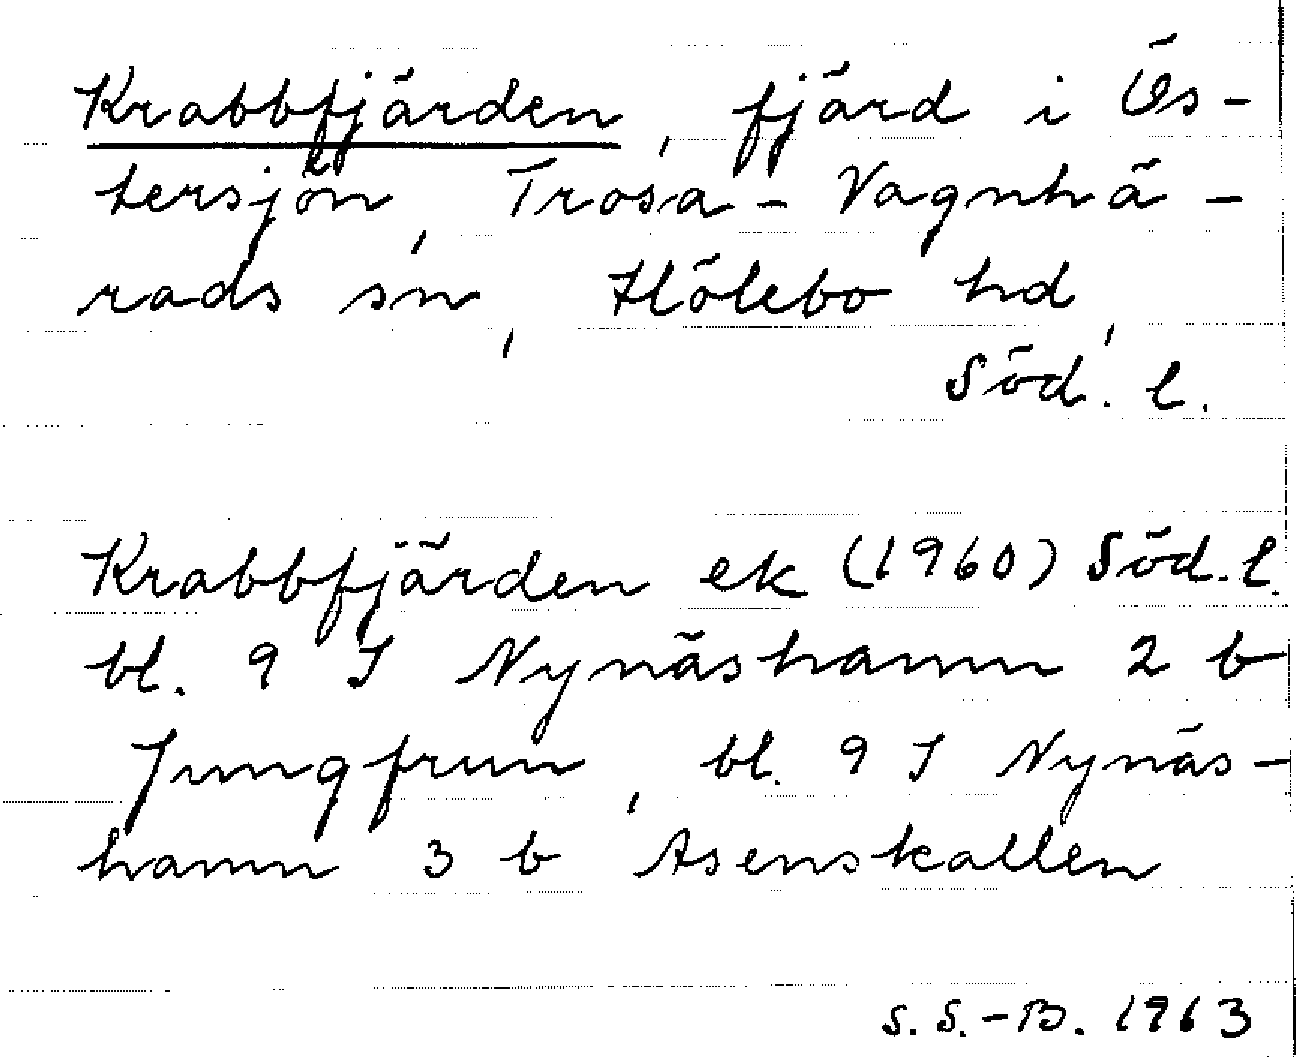 Krabbfjärden, fjärd i Ös-
tersjön, Trosa-Vagnhä-
rads sn, Hölebo hd,
Söd. l.
Krabbfjärden ek (1960) Söd. l.
bl. 9 I Nynäshamn 2 b
Jungfrun, bl. 9 I Nynäs-
hamn 3 b Asenskallen
S. S.-B. 1963